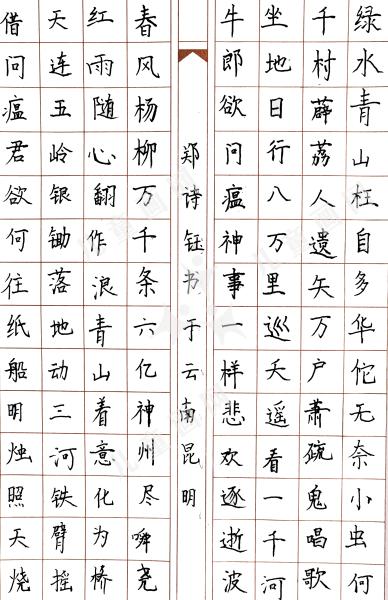 绿水青山枉自多华佗无奈小虫何
千村薜荔人遗矢万户萧疏鬼唱歌
坐地日行八万里巡天遥看一千河
牛郎欲问瘟神事一样悲欢逐逝波
郑诗钰书于云南昆明
春风杨柳万千条六亿神州尽瞬尧
红雨随心翻作浪青山着意化为桥
天连五岭银锄落地动三河铁臂摇
借问瘟君欲何往纸船明烛照天烧